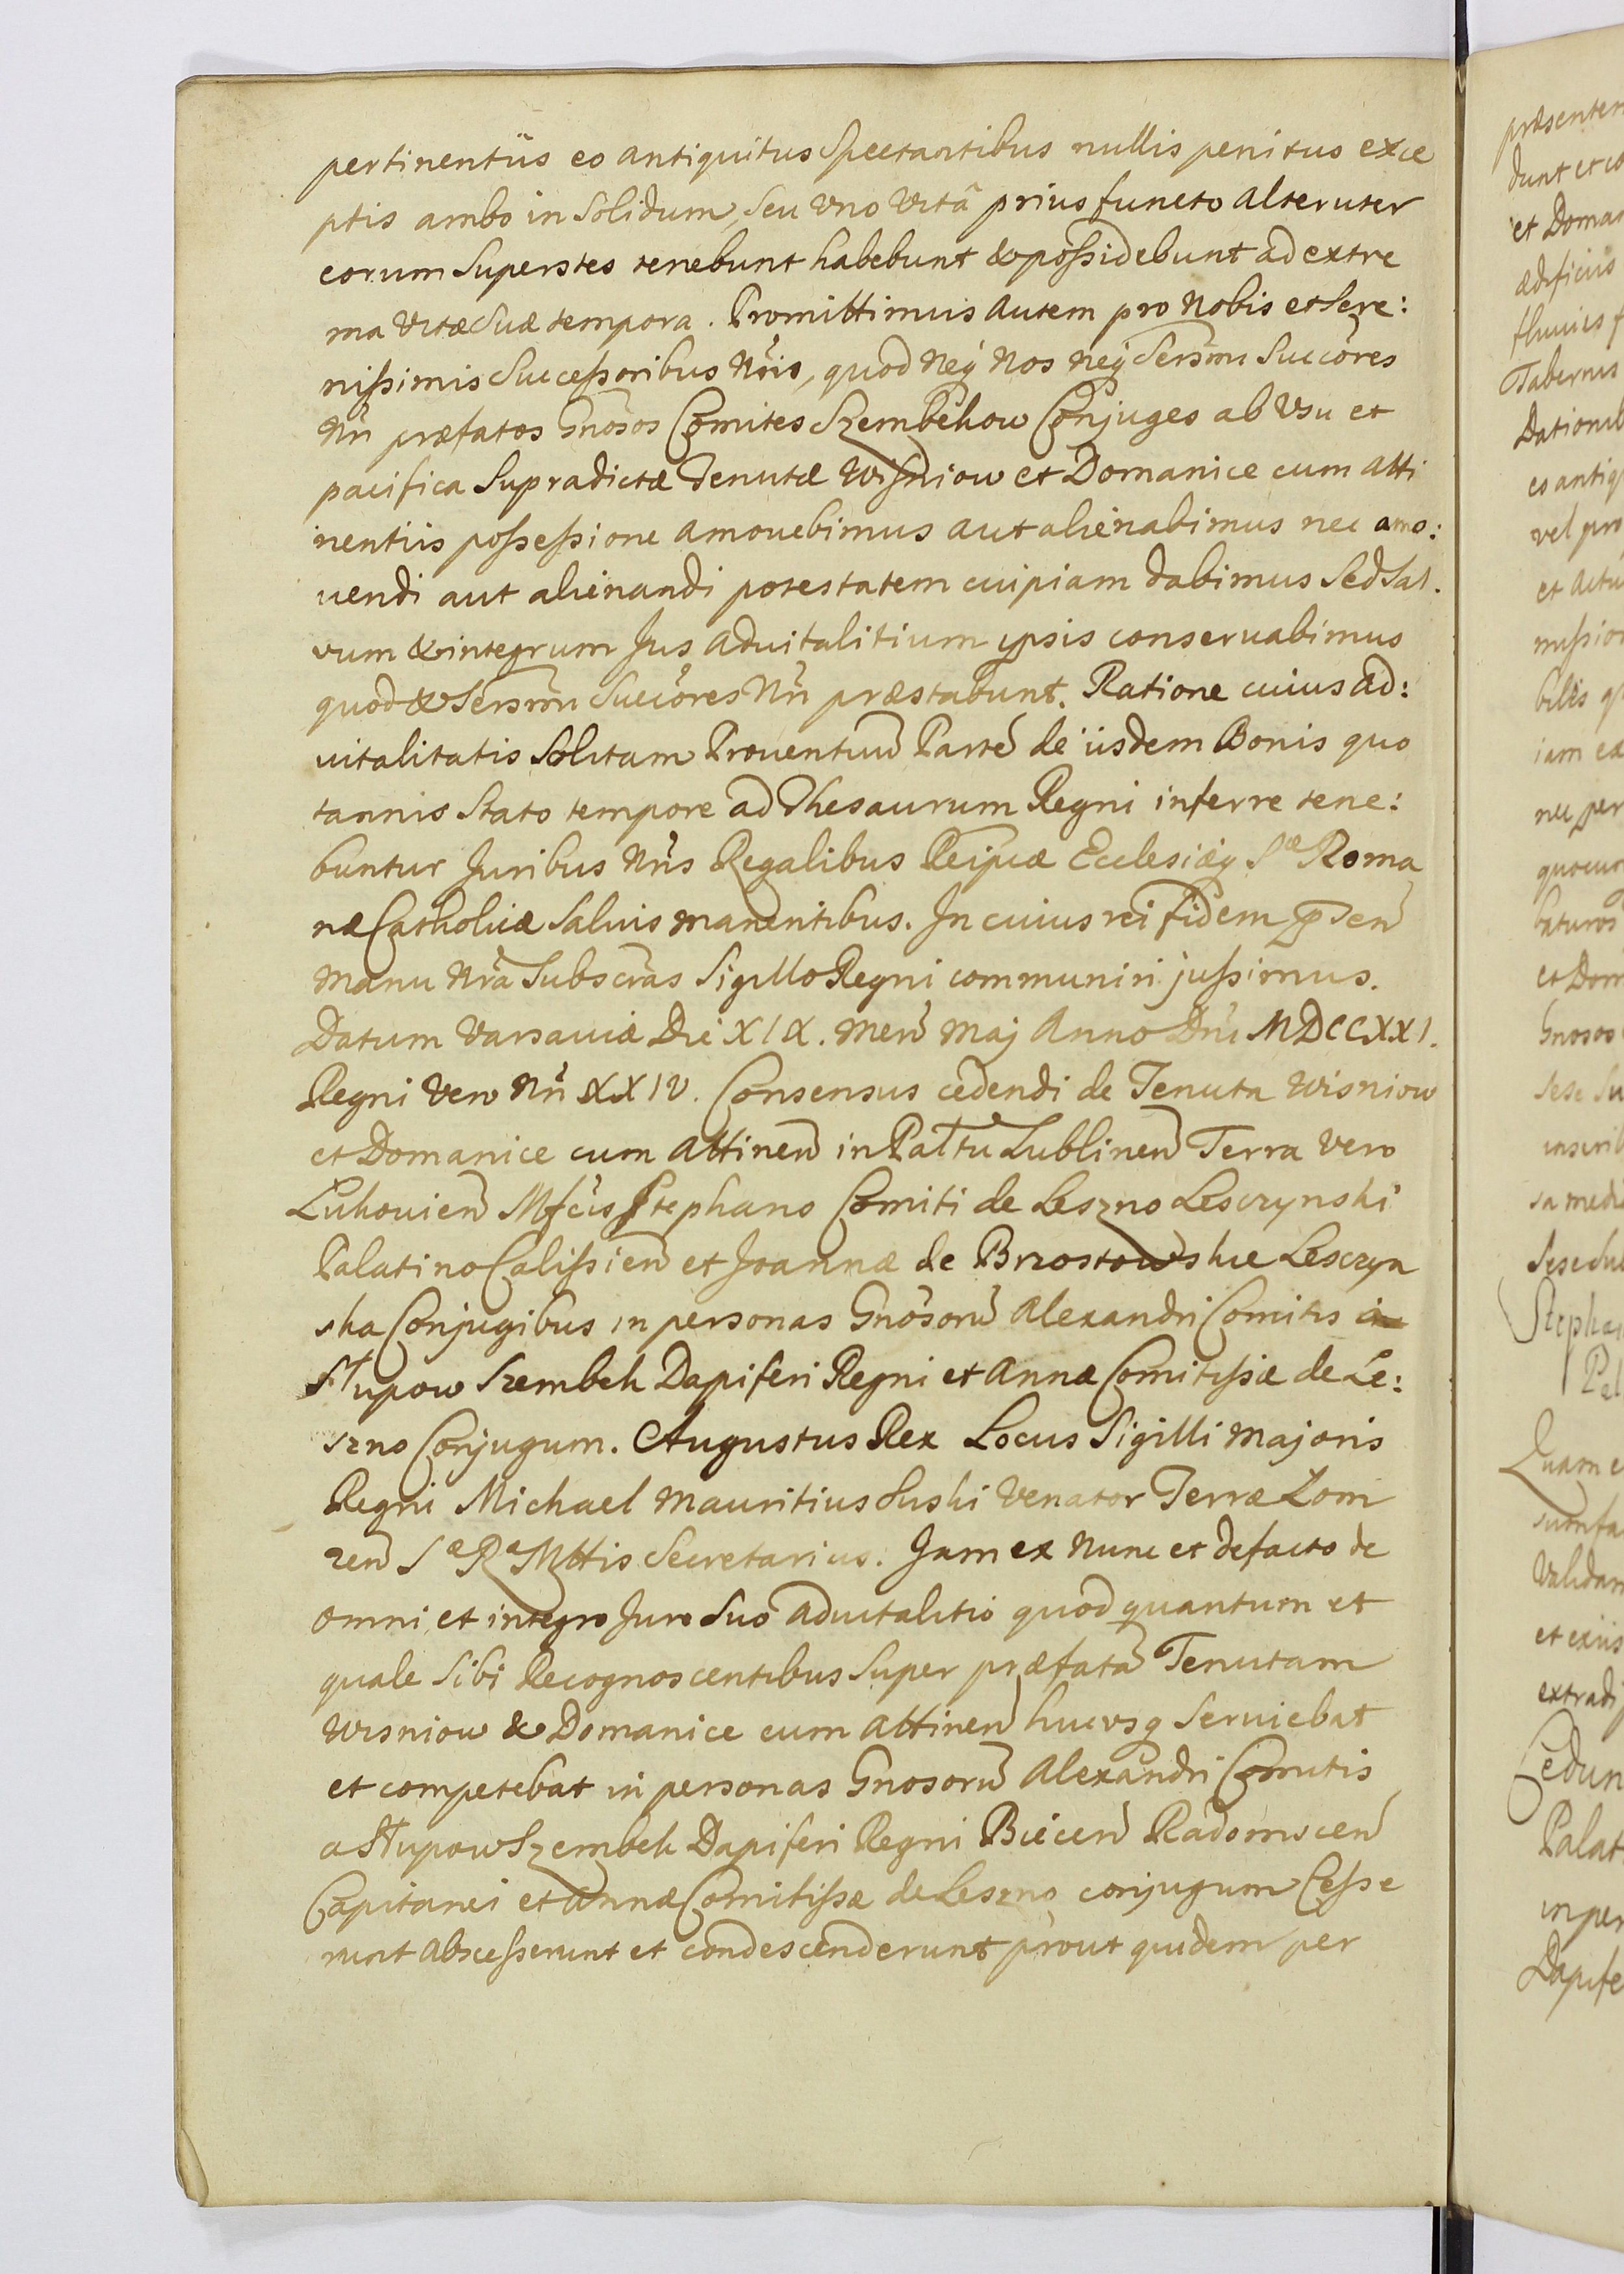 pertinentiis eo antiquitus Spectantibus nullis penitus exce
ptis ambo in Solidum, seu Vno Vitâ prius functo Alteruter
eorum Superstes tenebunt habebunt & possidebunt ad extre
ma Vitæ Suæ tempora. Promittimus Autem pro Nobis et Sere:
nissimis Successoribus Nris, quod Neq Nos neq Sersmi Succores
Nri præfatos Gnosos Comites Szembekow Conjuges ab Vsu et
pacifica Supradictæ Tenutæ Wisniow et Domanice cum Atti
nentiis possessione Amouebimus aut alienabimus nec amo:
uendi aut alienandi potestatem cuipiam dabimus Sed Sal.
vum & integrum Jus Aduitalitium ipsis conseruabimus
quod & Sersmi Succores Nri præstabunt. Ratione cuius ad:
uitalitatis Solitam Prouentuu Parte de iisdem Bonis quo
tannis Stato tempore ad Thesaurum Regni inferre tene:
buntur Juribus Nris Regalibus Reipcæ Ecclesiæq Sæ Roma
næ Catholicæ Saluis manentibus. In cuius rei Fidem psen
manu Nra Subscras Sigillo Regni communiri jussimus.
Datum Varsauiæ Die XIX. Men Maj Anno Dni MDCCXXI.
Regni Vero Nri XXIV. Consensus cedendi de Tenuta Wisniow
et Domanice cum Attinen in Paltu Lublinen Terra Vero
Lukouien Mfcis Stephano Comiti de Leszno Lesczynski
Palatino Calissien et Joannæ de Brzostowskie Lesczyn
ska Conjugibus in personas Gnosoru Alexandri Comitis a
Słupow Szembek Dapiferi Regni et Annæ Comitissæ de Le:
szno Conjugum. Augustus Rex Locus Sigilli Majoris
Regni Michael Mauritius Suski Venator Terræ Lom
zen Sæ Ræ Mttis Secretarius. Jam ex Nunc et defacto de
omni et integro Jure Suo aduitalitio quod quantum et
quale Sibi Recognoscentibus Super præfata Tenutam
Wisniow & Domanice cum Attinen hucvsq Seruiebat
et competebat in personas Gnosoru Alexandri Comitis
a Słupow Szembek Dapiferi Regni Biecen Radomscen
Capitanei et Annæ Comitissæ de Leszno conjugum Cesse
runt Abscesserunt et condescenderunt prout quidem per